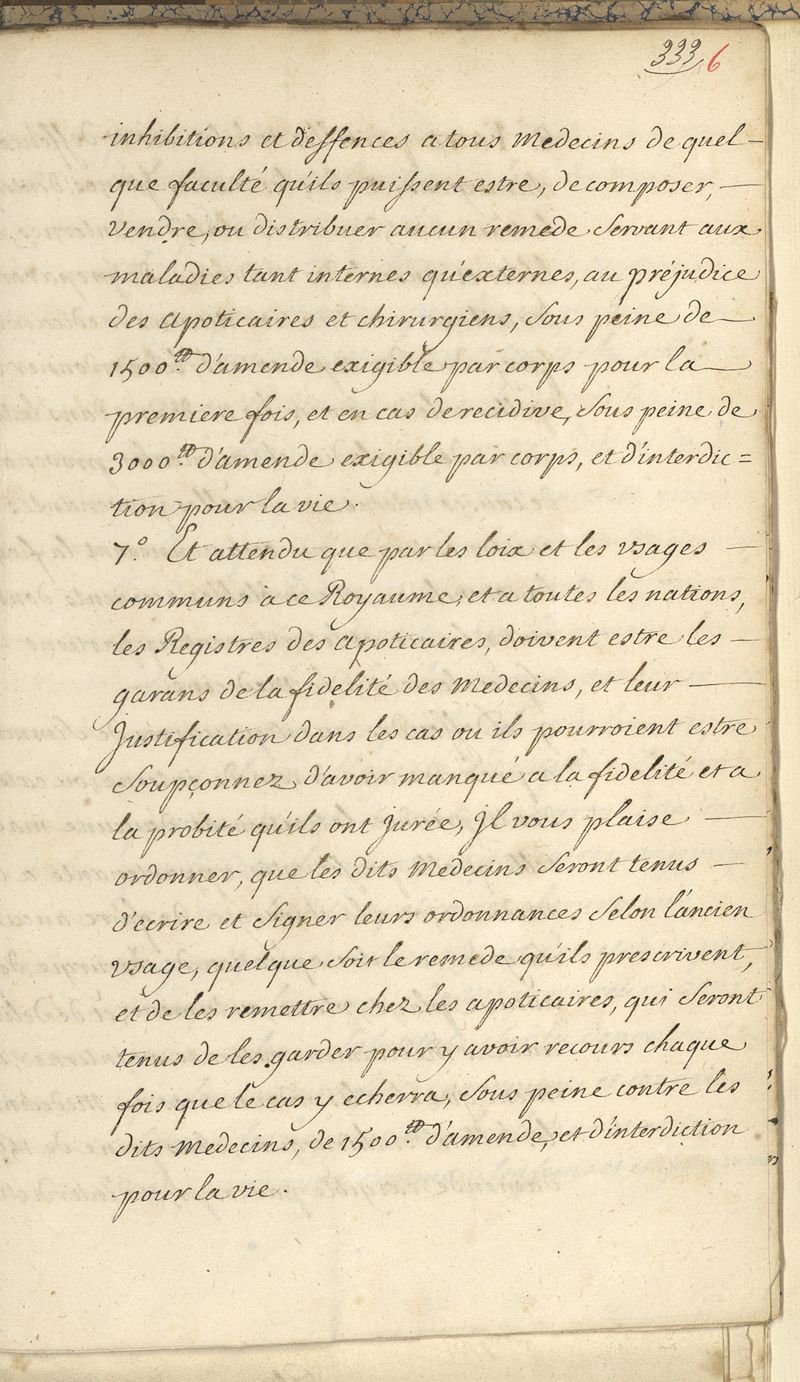 333 6
inhibitions et deffences a tous Medecins de quel-
que faculté qu'ils puissent estre, de composer,
vendre, ou distribuer aucun remede servant aux
maladies tant internes qu'externes, au préjudice
des Apoticaires et chirurgiens, sous peine de
1500.tt d'amende exigible par corps pour la
premiere fois, et en cas de recidive, sous peine de
3000.tt d'amende exigible par corps, et d'interdic=
tion pour la vie.
7.° Et attendu que par les loix et les usages
communs à ce Royaume, et a toutes les nations,
les Registres des Apoticaires, doivent estre les
garans de la fidelité des Medecins, et leur
Justification dans les cas ou ils pourroient estre
soupçonnez d'avoir manqué a la fidelité et a
la probité qu'ils ont Jurée, Il vous plaise
ordonner, que les dits Medecins seront tenus
d'ecrire et signer leurs ordonnances selon l'ancien
usage, quelque soit le remede qu'ils prescrivent,
et de les remettre chez les apoticaires, qui seront
tenus de les garder pour y avoir recours chaque
fois que le cas y echerra, sous peine contre les
dits Medecins, de 1500.tt d'amende, et d'interdiction
pour la vie.